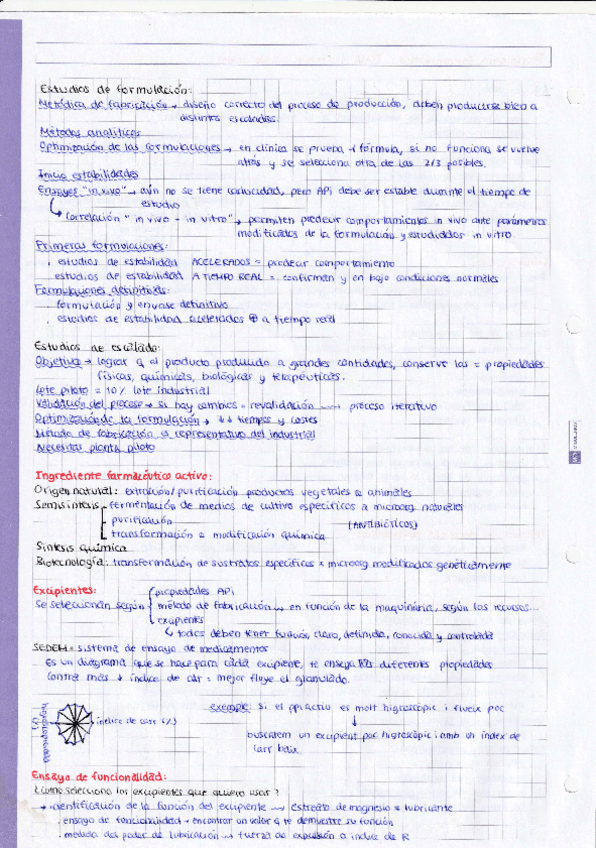 Estudios de formulación:
Metódica de fabricación → diseño correcto del proceso de producción, deben producirse bien a
distintos escalados.
Métodos analíticos
Optimización de las formulaciones → en clínica se prueba 1 fórmula, si no funciona se vuelve
atrás y se selecciona otra de las 2/3 posibles.
Inicio estabilidades
Ensayos "in vivo" → aún no se tiene caducidad, pero API debe ser estable durante el tiempo de
estudio
Correlación "in vivo - in vitro" → permiten predecir comportamientos in vivo ante parámetros
modificados de la formulación y estudiados in vitro.
Primeras formulaciones:
. estudios de estabilidad ACELERADOS = predecir comportamiento
. estudios de estabilidad A TIEMPO REAL = confirman y en bajo condiciones normales
Formulaciones definitivas:
. formulación y envase definitivo
. estudios de estabilidad acelerados ⊕ a tiempo real
Estudios de escalado:
Objetivo → lograr q el producto producido a grandes cantidades, conserve las = propiedades
físicas, químicas, biológicas y terapéuticas.
Lote piloto = 10% lote industrial
Validación del proceso → si hay cambios = revalidación → proceso iterativo
Optimización de la formulación → ↓↓ tiempos y costes
Método de fabricación representativo del industrial
Necesitas planta piloto
Ingrediente farmacéutico activo:
Origen natural: extracción/purificación productos vegetales o animales
Semisíntesis - fermentación de medios de cultivo específicos x microorg naturales
purificación (ANTIBIÓTICOS)
transformación o modificación química
Síntesis química
Biotecnología: transformación de sustratos específicos x microorg modificados genéticamente
Excipientes: propiedades API
Se seleccionan según método de fabricación → en función de la maquinaria, según los recursos...
excipientes
todos deben tener función clara, definida, conocida y controlada
SEDEM = sistema de ensayo de medicamentos
es un diagrama que se hace para cada excipiente, te ensaya diferentes propiedades
contra más ↓ índice de carr = mejor fluye el granulado.
exemple: Si el ppi actiu es molt higroscòpic i flueix poc
higroscopicidad (%)
índice de carr (%)
buscarem un excipient poc higroscòpic i amb un índex de
carr baix.
Ensayo de funcionalidad:
¿cómo selecciono los excipientes que quiero usar?
→ identificación de la función del excipiente → Estearato de magnesio = lubricante
. ensayo de funcionalidad → encontrar un valor q te demuestre su función
. medida del poder de lubricación → fuerza de expulsión o índice de R